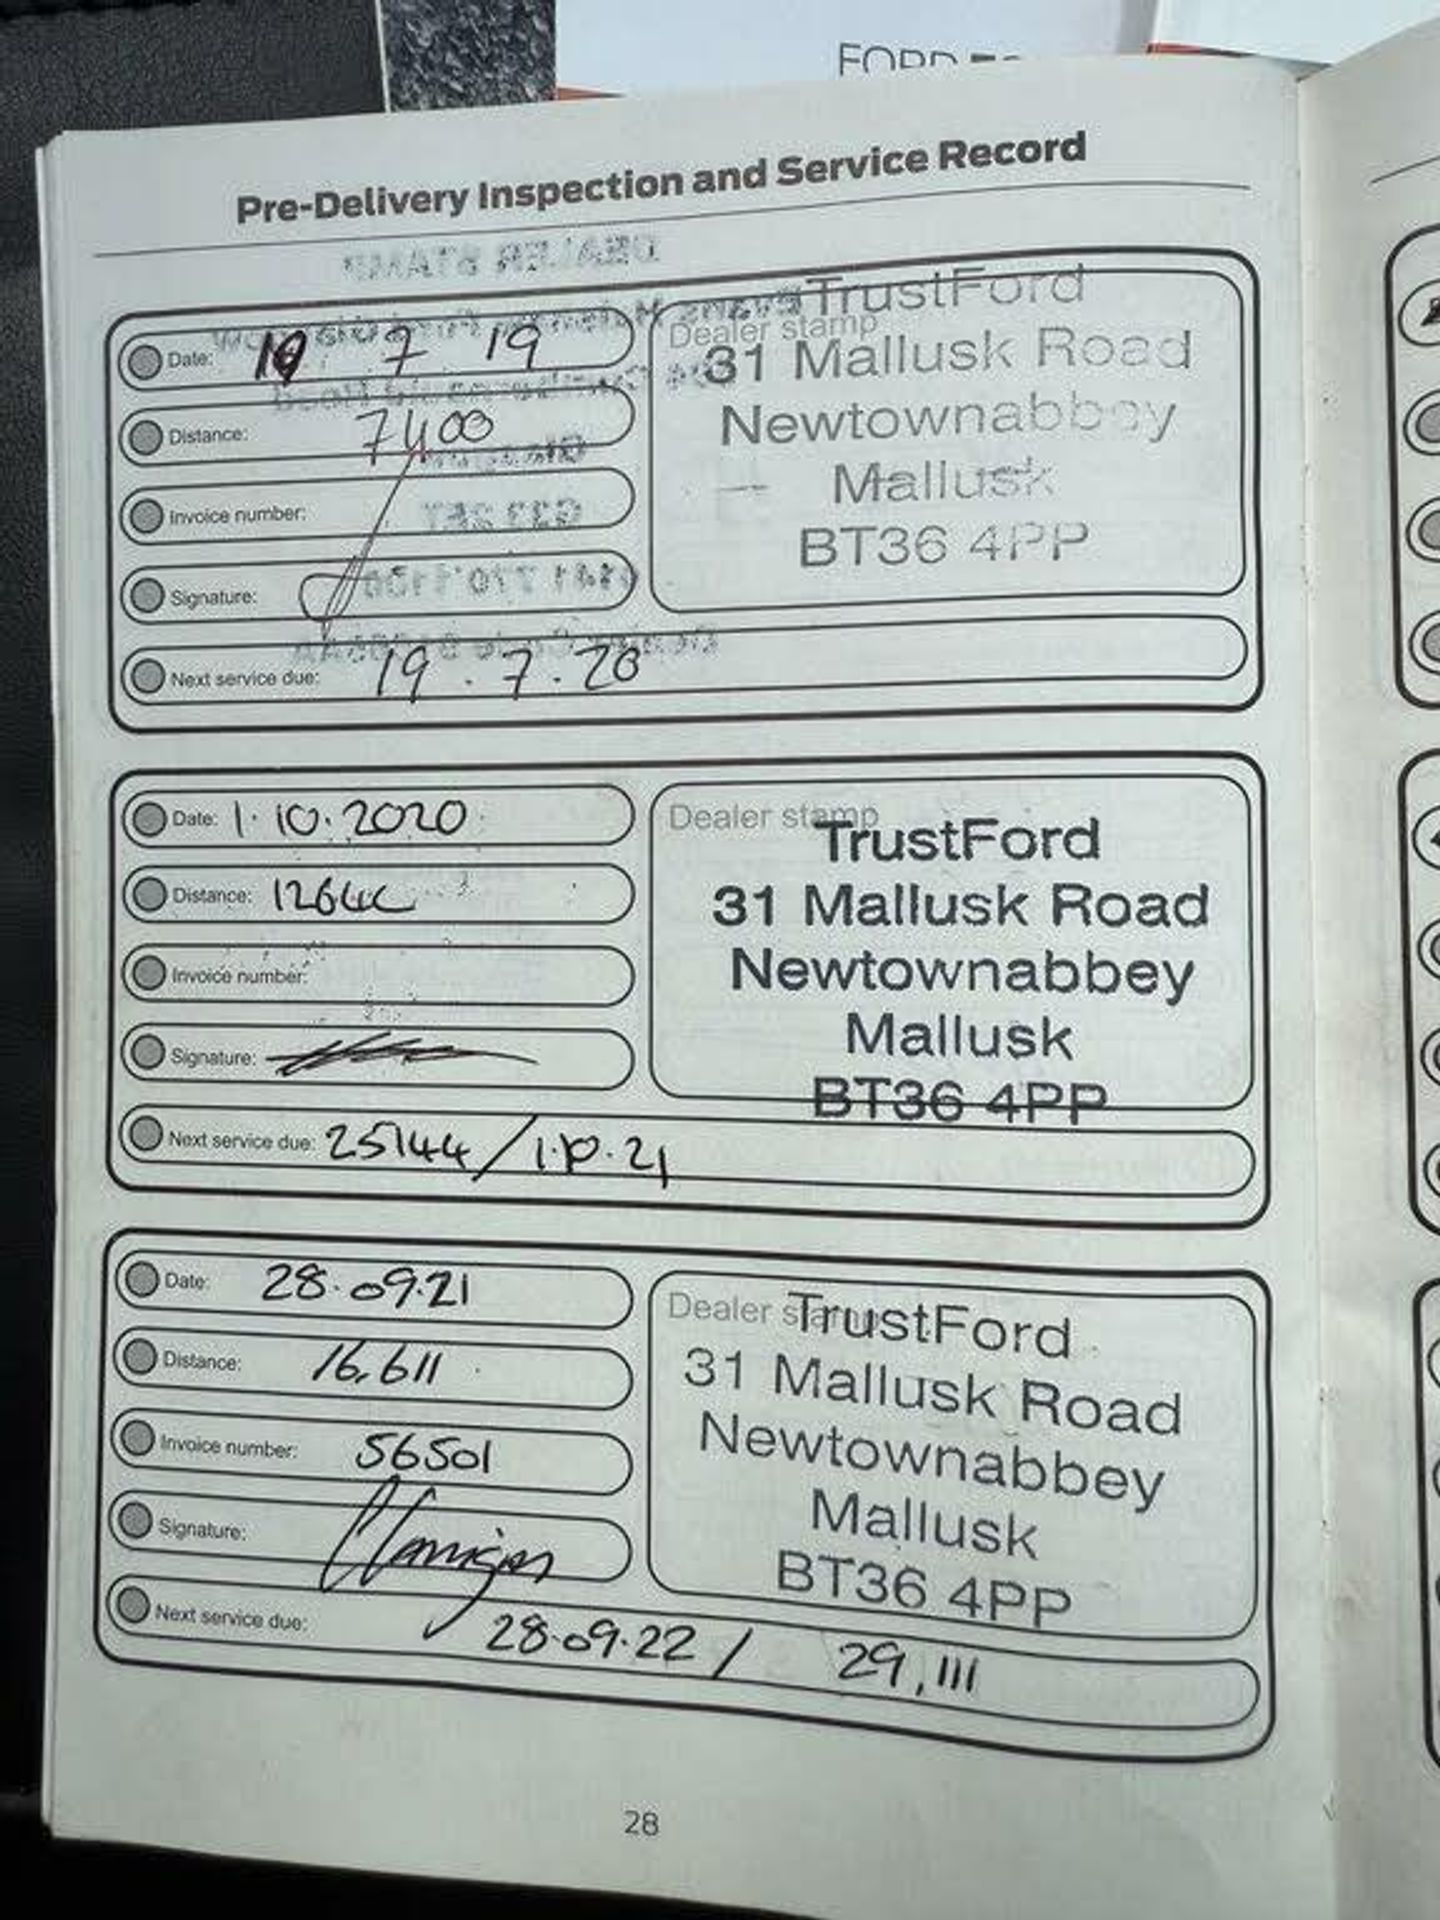 FORD
Pre-Delivery Inspection and Service Record
DEALER STAMP
Date: 19 7 19
Distance: 7400
Invoice number:
Signature:
Next service due: 19.7.20
Dealer stamp
TrustFord
31 Mallusk Road
Newtownabbey
Mallusk
BT36 4PP
Date: 1.10.2020
Distance: 12644
Invoice number:
Signature:
Next service due: 25144 / 1.10.21
Dealer stamp
TrustFord
31 Mallusk Road
Newtownabbey
Mallusk
BT36 4PP
Date: 28.09.21
Distance: 16,611
Invoice number: 56501
Signature:
Next service due: 28.09.22 / 29,111
Dealer stamp
TrustFord
31 Mallusk Road
Newtownabbey
Mallusk
BT36 4PP
28